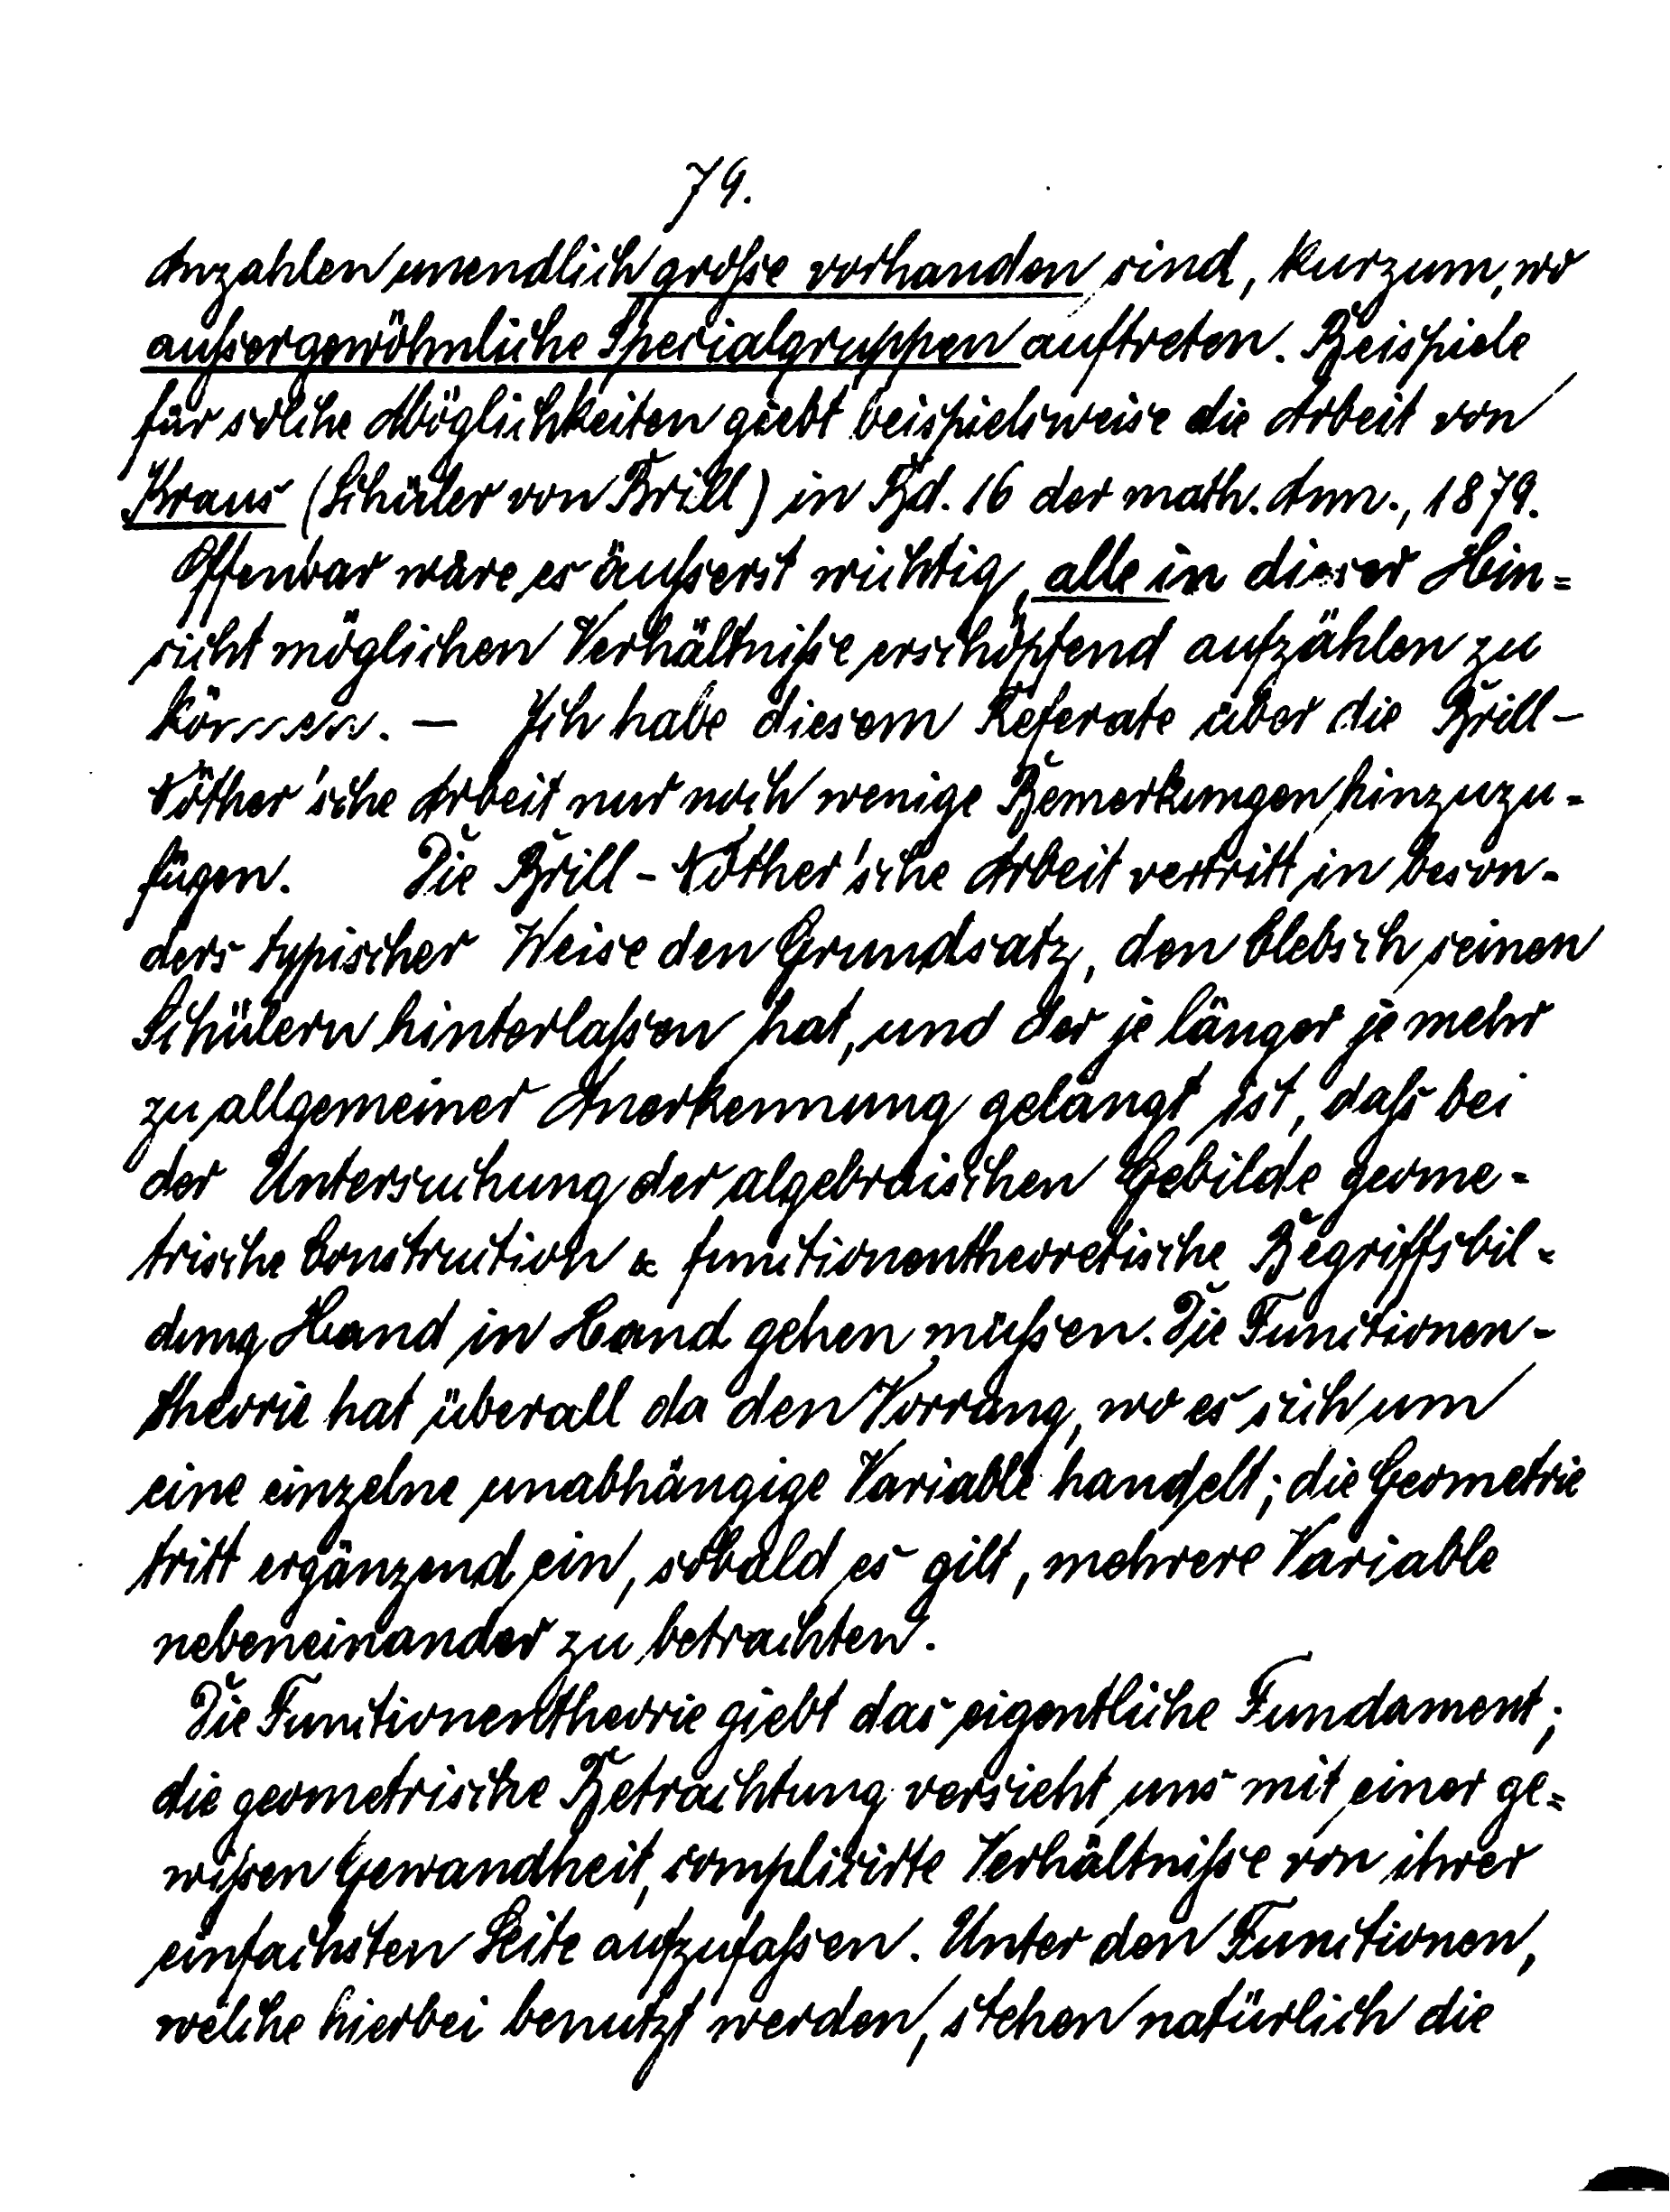 79.
Anzahlen unendlich große vorhanden sind, kurzum, wo
außergewöhnliche Specialgruppen auftreten. Beispiele
für solche Möglichkeiten giebt beispielsweise die Arbeit von
Kraus (Schüler von Brill) in Bd. 16 der math. Ann., 1879.
Offenbar wäre es äußerst wichtig, alle in dieser Hin=
sicht möglichen Verhältniße erschöpfend aufzählen zu
können. — Ich habe diesem Referate über die Brill-
Nöther'sche Arbeit nur noch wenige Bemerkungen hinzuzu-
fügen. Die Brill-Nöther'sche Arbeit vertritt in beson-
ders typischer Weise den Grundsatz, den Clebsch seinen
Schülern hinterlaßen hat, und der je länger je mehr
zu allgemeiner Anerkennung gelangt ist, daß bei
der Untersuchung der algebraischen Gebilde geome-
trische Construction & functionentheoretische Begriffsbil-
dung Hand in Hand gehen müßen. Die Functionen-
theorie hat überall da den Vorrang, wo es sich um
eine einzelne unabhängige Variable handelt; die Geometrie
tritt ergänzend ein, sobald es gilt, mehrere Variable
nebeneinander zu betrachten.
Die Functionentheorie giebt das eigentliche Fundament;
die geometrische Betrachtung versieht uns mit einer ge=
wißen Gewandheit, complicirte Verhältniße von ihrer
einfachsten Seite aufzufaßen. Unter den Functionen,
welche hierbei benutzt werden, stehen natürlich die